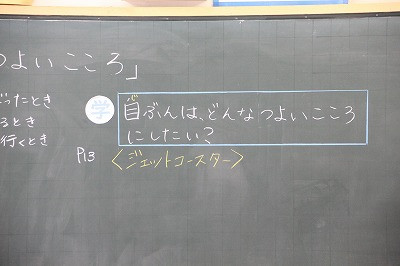 つよいこころ」
ったとき
るとき
行くとき
学
自ぶんは、どんなつよいこころ
にしたい?
P13 〈ジェットコースター〉